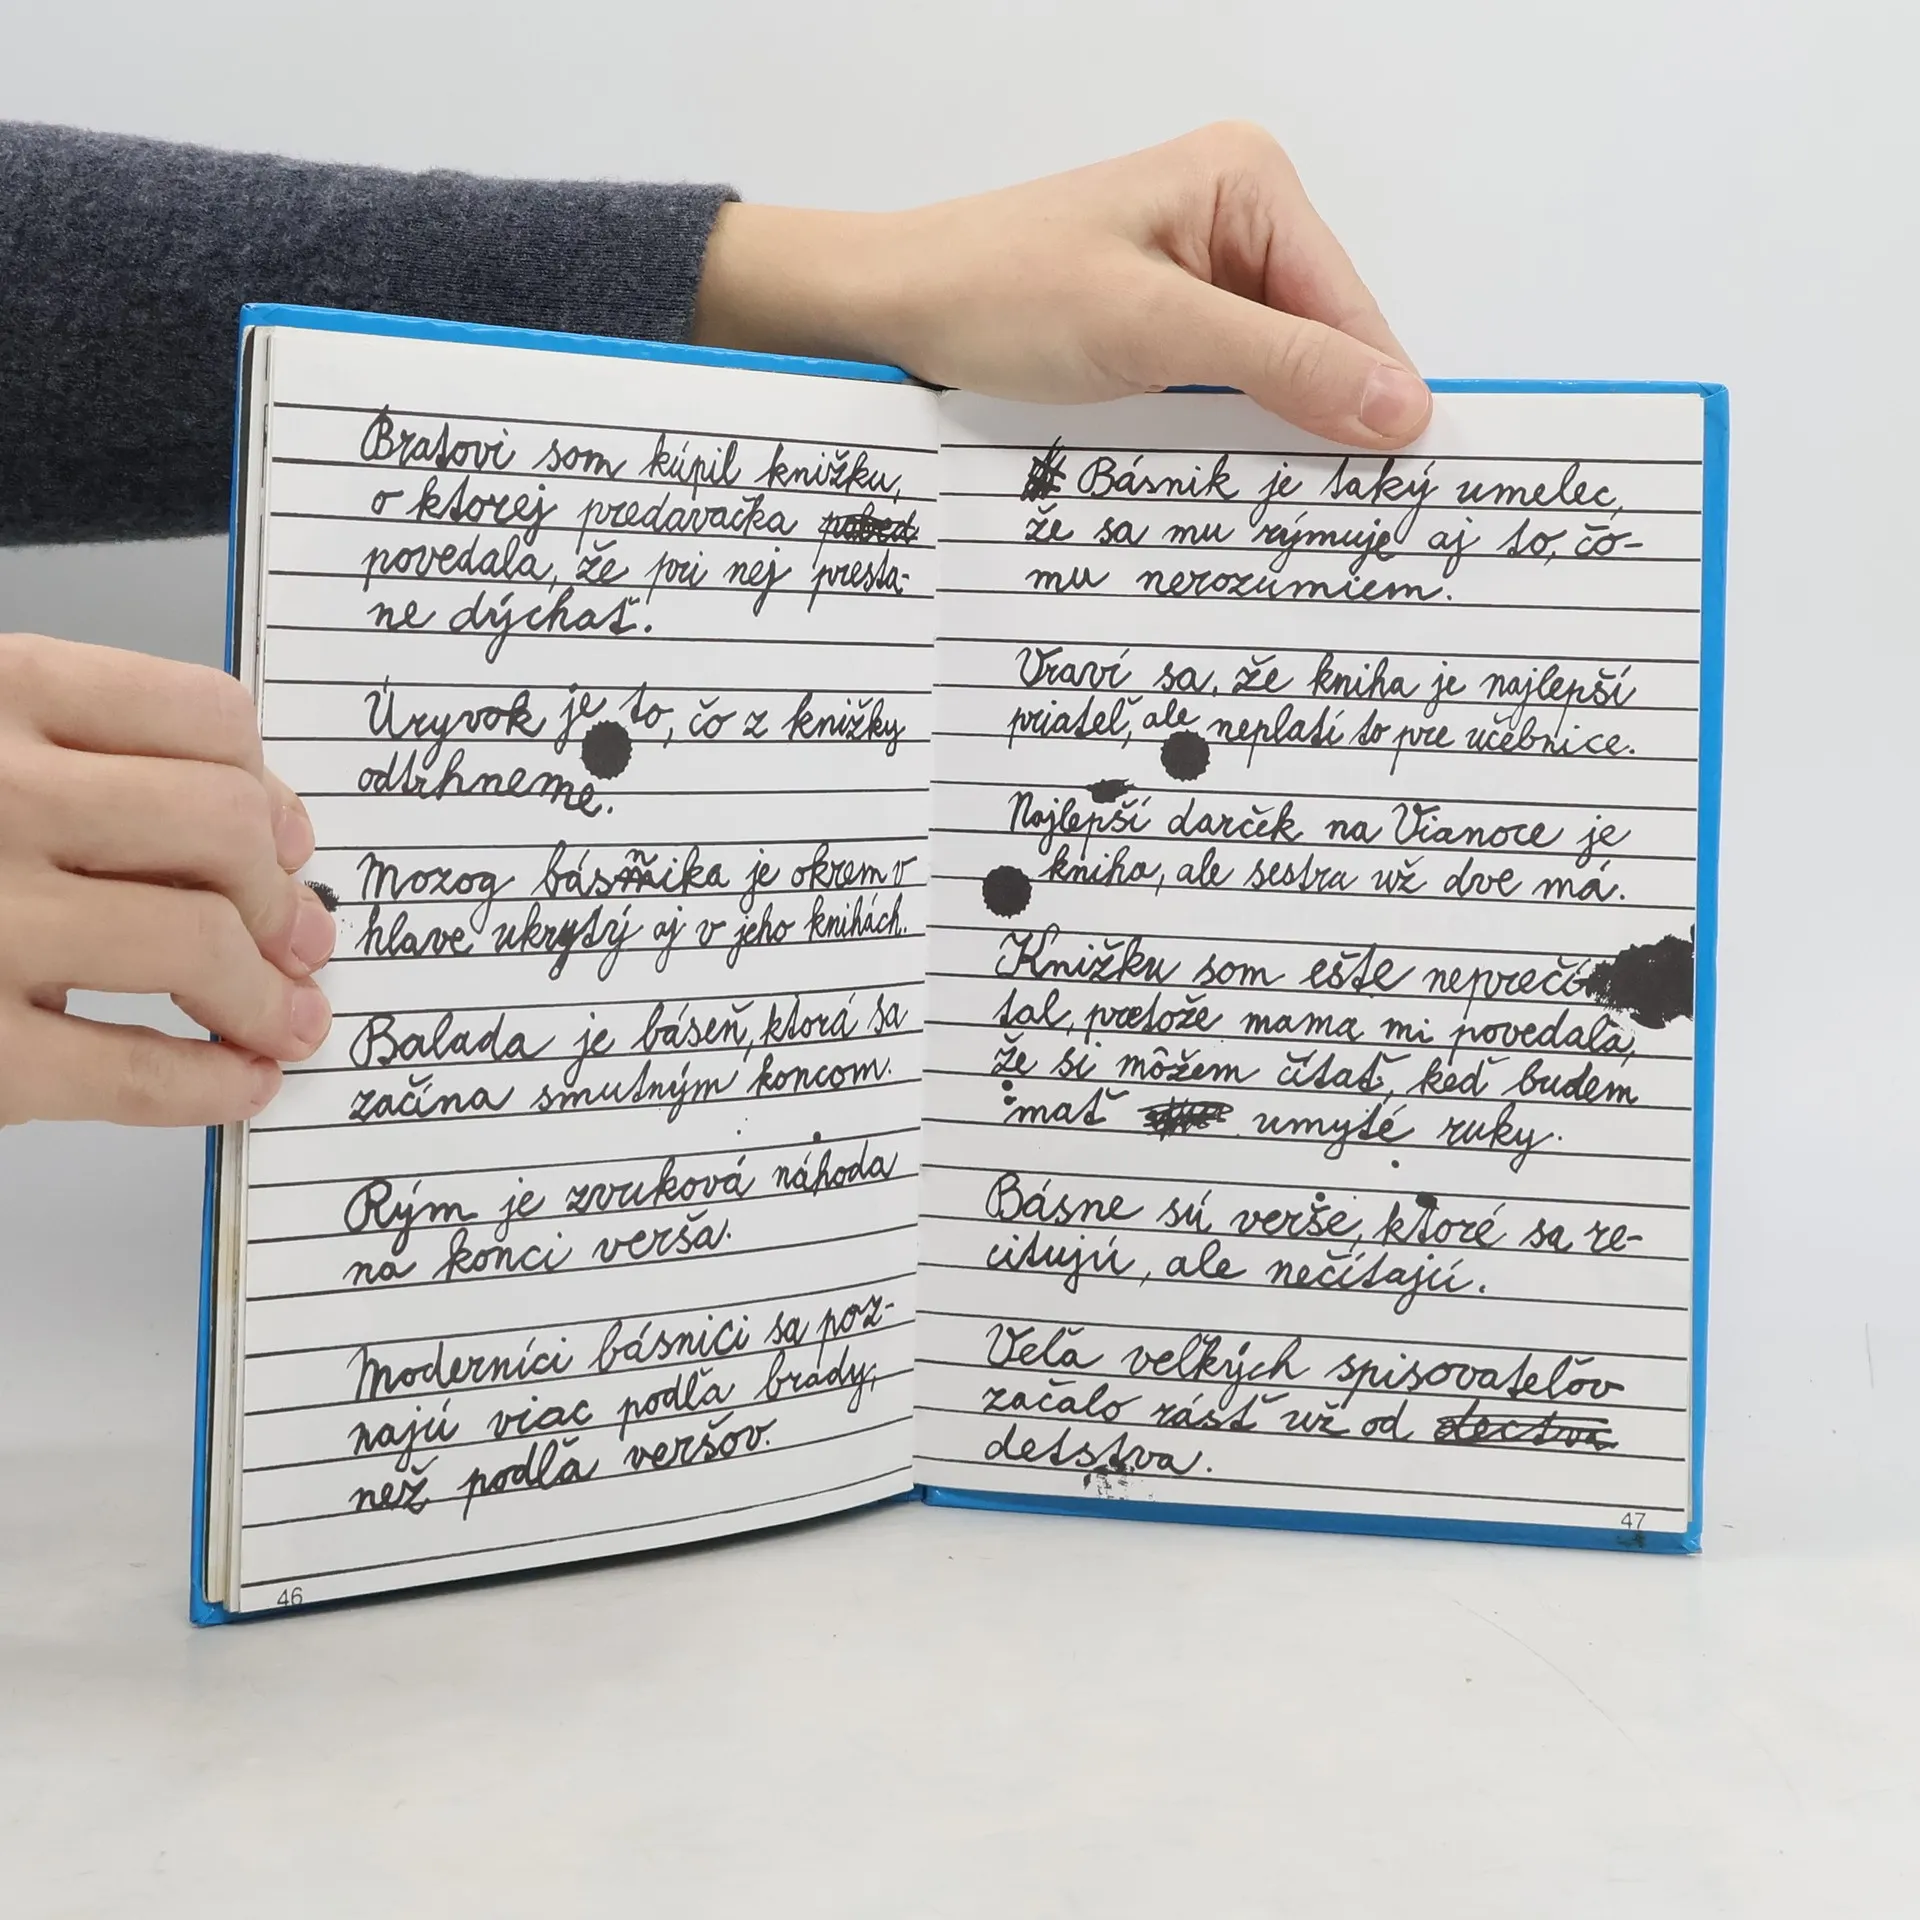 Bratovi som kúpil knižku,
o ktorej predavačka
povedala, že pri nej presta-
ne dýchať.
Úryvok je to, čo z knižky
odtrhneme.
Mozog básnika je okrem v
hlave ukrytý aj v jeho knihách.
Balada je báseň, ktorá sa
začína smutným koncom.
Rým je zvuková náhoda
na konci verša.
Moderníci básnici sa poz-
najú viac podľa brady,
než podľa veršov.
46
Básnik je taký umelec,
že sa mu rýmuje aj to, čo-
mu nerozumiem.
Vraví sa, že kniha je najlepší
priateľ, ale neplatí to pre učebnice.
Najlepší darček na Vianoce je
kniha, ale sestra už dve má.
Knižku som ešte neprečí-
tal, pretože mama mi povedala,
že si môžem čítať, keď budem
mať umyté ruky.
Básne sú verše, ktoré sa re-
citujú, ale nečítajú.
Veľa veľkých spisovateľov
začalo rásť už od dectva
detstva.
47